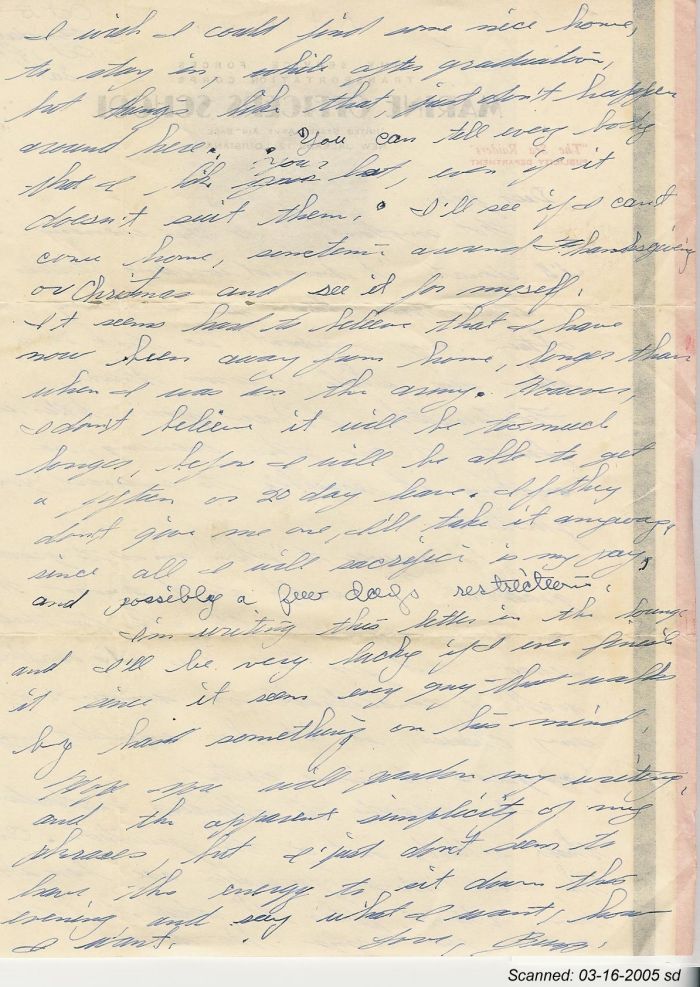 I wish I could find some nice home,
to stay in, while after graduation,
but things like that just don't happen
around here. You can tell every body
that I like your hat, even if it
doesn't suit them. I'll see if I can't
come home, sometime around Thanksgiving
or Christmas and see it for myself.
It seems hard to believe that I have
now been away from home, longer than
when I was in the army. However,
I don't believe it will be too much
longer, before I will be able to get
a fifteen or 20 day leave. If they
don't give me one, I'll take it anyway,
since all I will sacrifice is my pay,
and possibly a few days restriction.
I'm writing this letter in the lounge
and I'll be very lucky if I ever finish
it since it seems every guy that walks
by has something on his mind.
Hope you will pardon my writing,
and the apparent simplicity of my
phrases, but I just don't seem to
have the energy to sit down this
evening and say what I want, how
I want. Love,
Scanned: 03-16-2005 sd